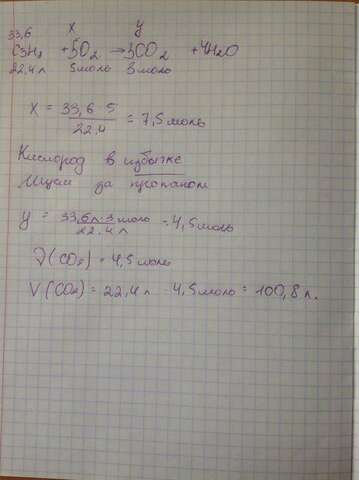 33,6 x y
C3H8 + 5O2 → 3CO2 + 4H2O
22,4 л 5 моль 3 моль
x = 33,6 · 5 / 22,4 = 7,5 моль
Кислород в избытке
Ищем по пропаном
y = 33,6 л · 3 моль / 22,4 л = 4,5 моль
ν(CO2) = 4,5 моль
V(CO2) = 22,4 л · 4,5 моль = 100,8 л.